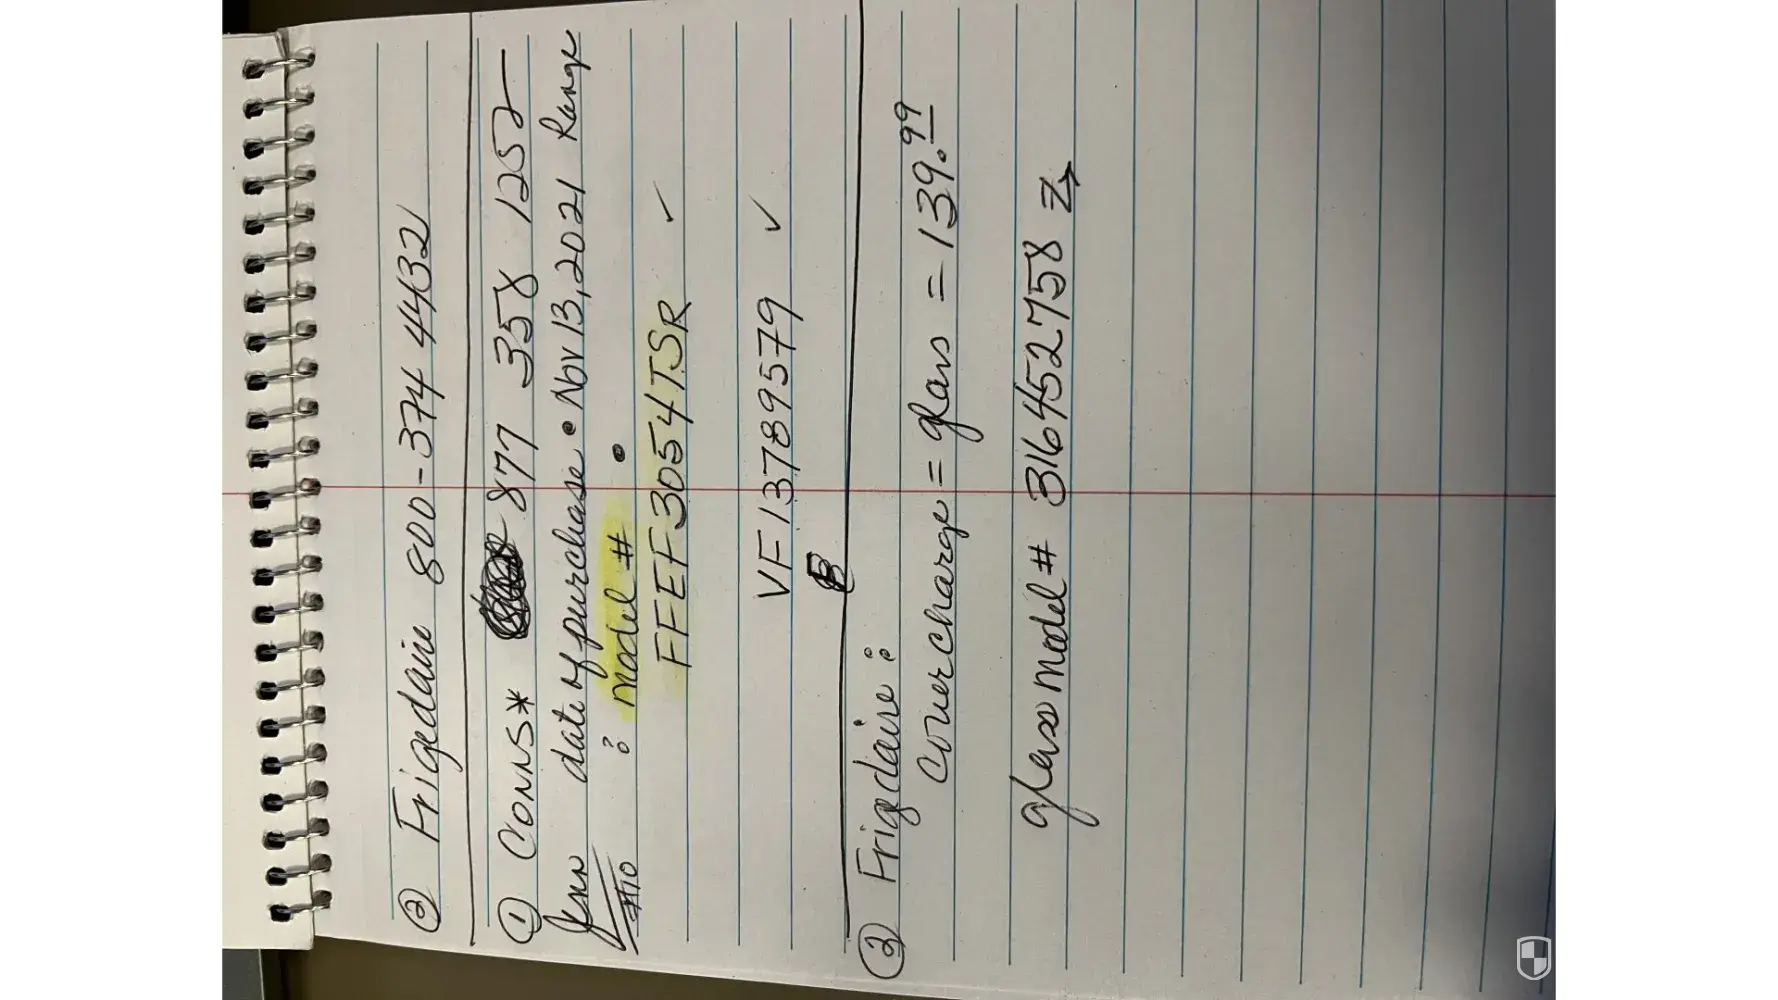 ② Frigedaire 800-374 4432
① Conns* 877 358 1252
Jenn date of purchase • Nov 13, 2021 Range
#10 : model # •
FFEF3054TSR ✓
VF13789579 ✓
B
② Frigedaire :
Couercharge = glass = 139.99
glass model # 316452758 Z→